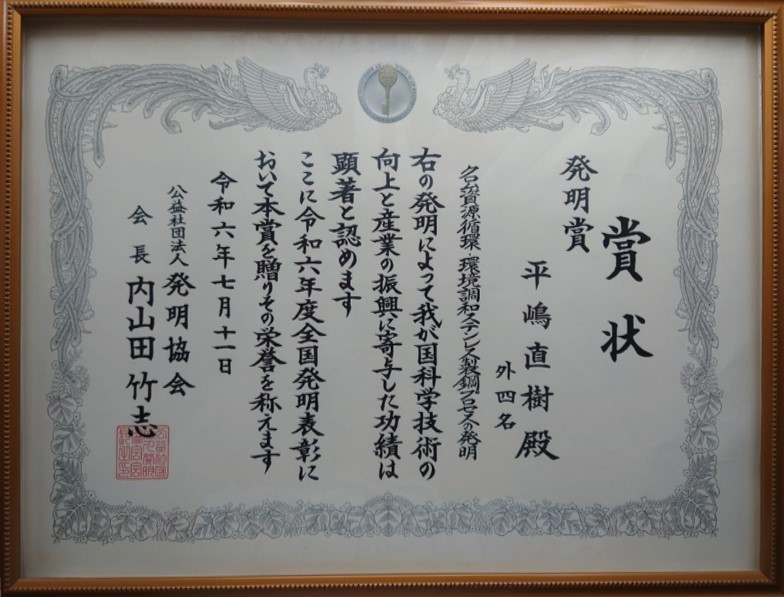 賞状
発明賞
平嶋直樹殿
外四名
名資源循環・環境調和ステンレス製鋼プロセスの発明
右の発明によって我が国科学技術の
向上と産業の振興に寄与した功績は
顕著と認めます
ここに令和六年度全国発明表彰に
おいて本賞を贈りその栄誉を称えます
令和六年七月十一日
公益社団法人発明協会
会長内山田竹志